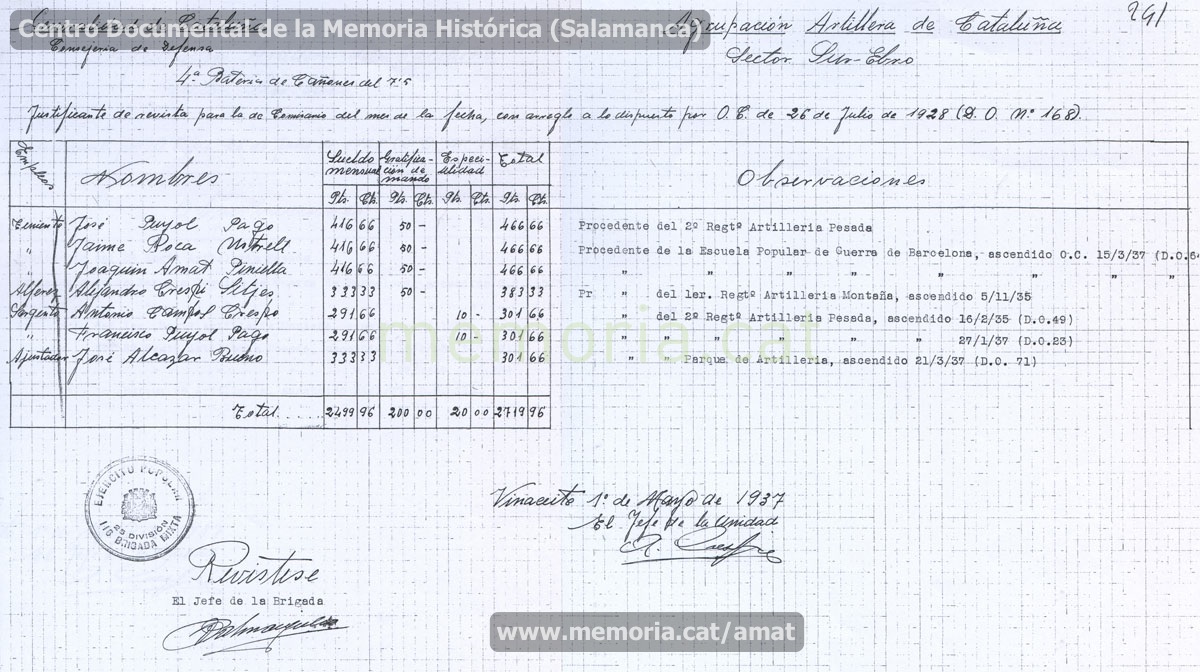 Centro Documental de la Memoria Histórica (Salamanca)
Agrupación Artillera de Cataluña
241
Consejería de Defensa
Sector Sur-Ebro
4ª Batería de Cañones del 7'5
Justificante de revista para la de Comisario del mes de la fecha, con arreglo a lo dispuesto por O. C. de 26 de Julio de 1928 (D. O. Nº 168).
Empleos Nombres Sueldo mensual Gratificación de mando Especialidad Total Observaciones
Pts. Cts. Pts. Cts. Pts. Cts. Pts. Cts.
Teniente José Pujol Pago 416 66 50 - 466 66 Procedente del 2º Regtº Artilleria Pesada
" Jaime Roca 416 66 50 - 466 66 Procedente de la Escuela Popular de Guerra de Barcelona, ascendido O.C. 15/3/37 (D.O.6
" Joaquin Amat Piniella 416 66 50 - 466 66 " " " " " " " "
Alferez Alejandro Crespi Sitjes 333 33 50 - 383 33 Pr " del 1er. Regtº Artilleria Montaña, ascendido 5/11/35
Sargento Antonio Campol Crespo 291 66 10 - 301 66 " del 2º Regtº Artilleria Pesada, ascendido 16/2/35 (D.O.49)
" Francisco Pujol Pago 291 66 10 301 66 " " " " " 27/1/37 (D.O.23)
Ajustador José Alcazar Bueno 333 33 301 66 " Parque de Artilleria, ascendido 21/3/37 (D.O. 71)
Total 2499 96 200 00 20 00 2719 96
memoria.cat
EJERCITO POPULAR
25 DIVISIÓN
116 BRIGADA MIXTA
Vinaceite 1º de Mayo de 1937
El Jefe de la Unidad
A. Crespi
Revístese
El Jefe de la Brigada
www.memoria.cat/amat